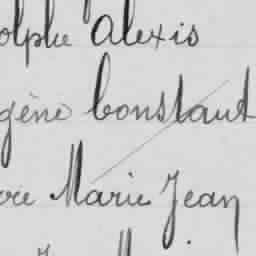 olphe Alexis
gène Constant
Marie Jean